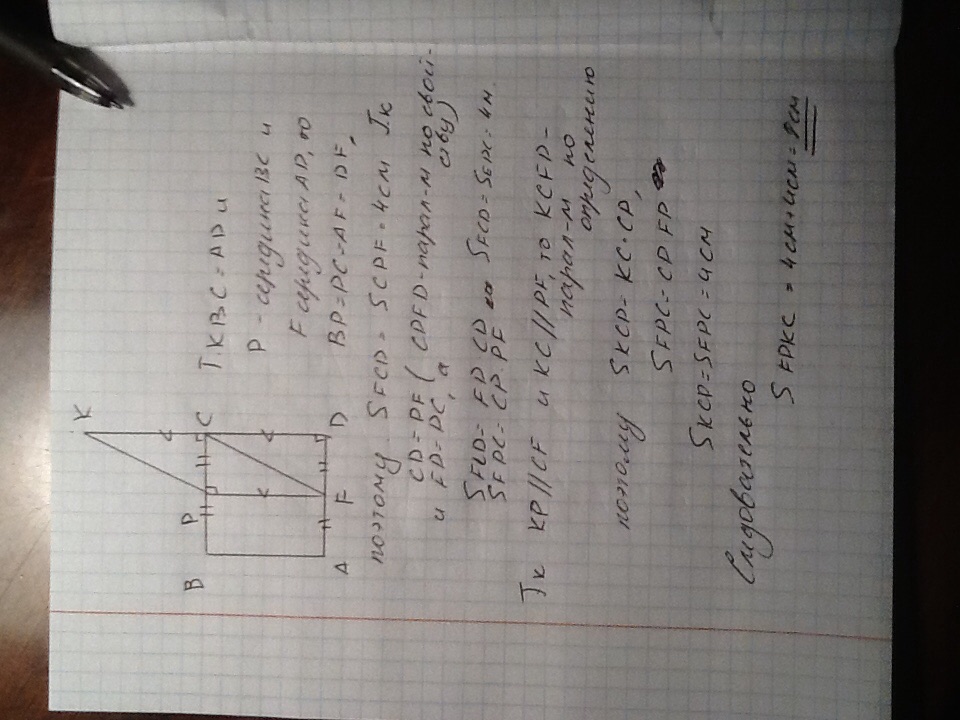 K
B P C
A F D
Т.к BC = AD и
P - середина BC и
F середина AD, то
BP = PC = AF = DF,
поэтому SFCD = SCPF = 4см Тк
CD = PF ( CPFD - парал-м по свой-
ству)
и FD = PC, а
SFCD = FD · CD SFCD = SFPC = 4м
SFPC = CP · PF
Тк KP // CF и KC // PF, то KCFD -
парал-м по
определению
поэтому SKCP = KC · CP,
SFPC = CP FP
SKCP = SFPC = 4см
Следовательно
SFPKC = 4см + 4см = 8см